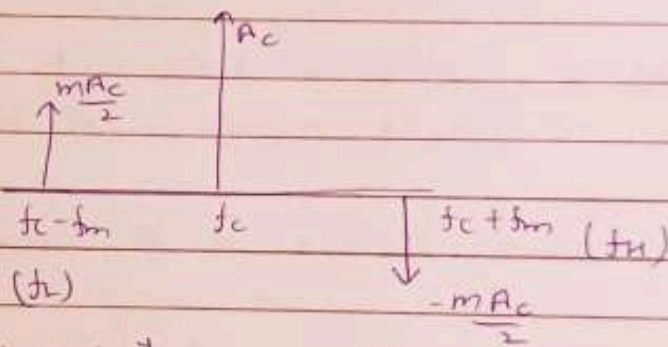 Ac
mAc/2
fc-fm fc fc+fm (fH)
(fL)
-mAc/2